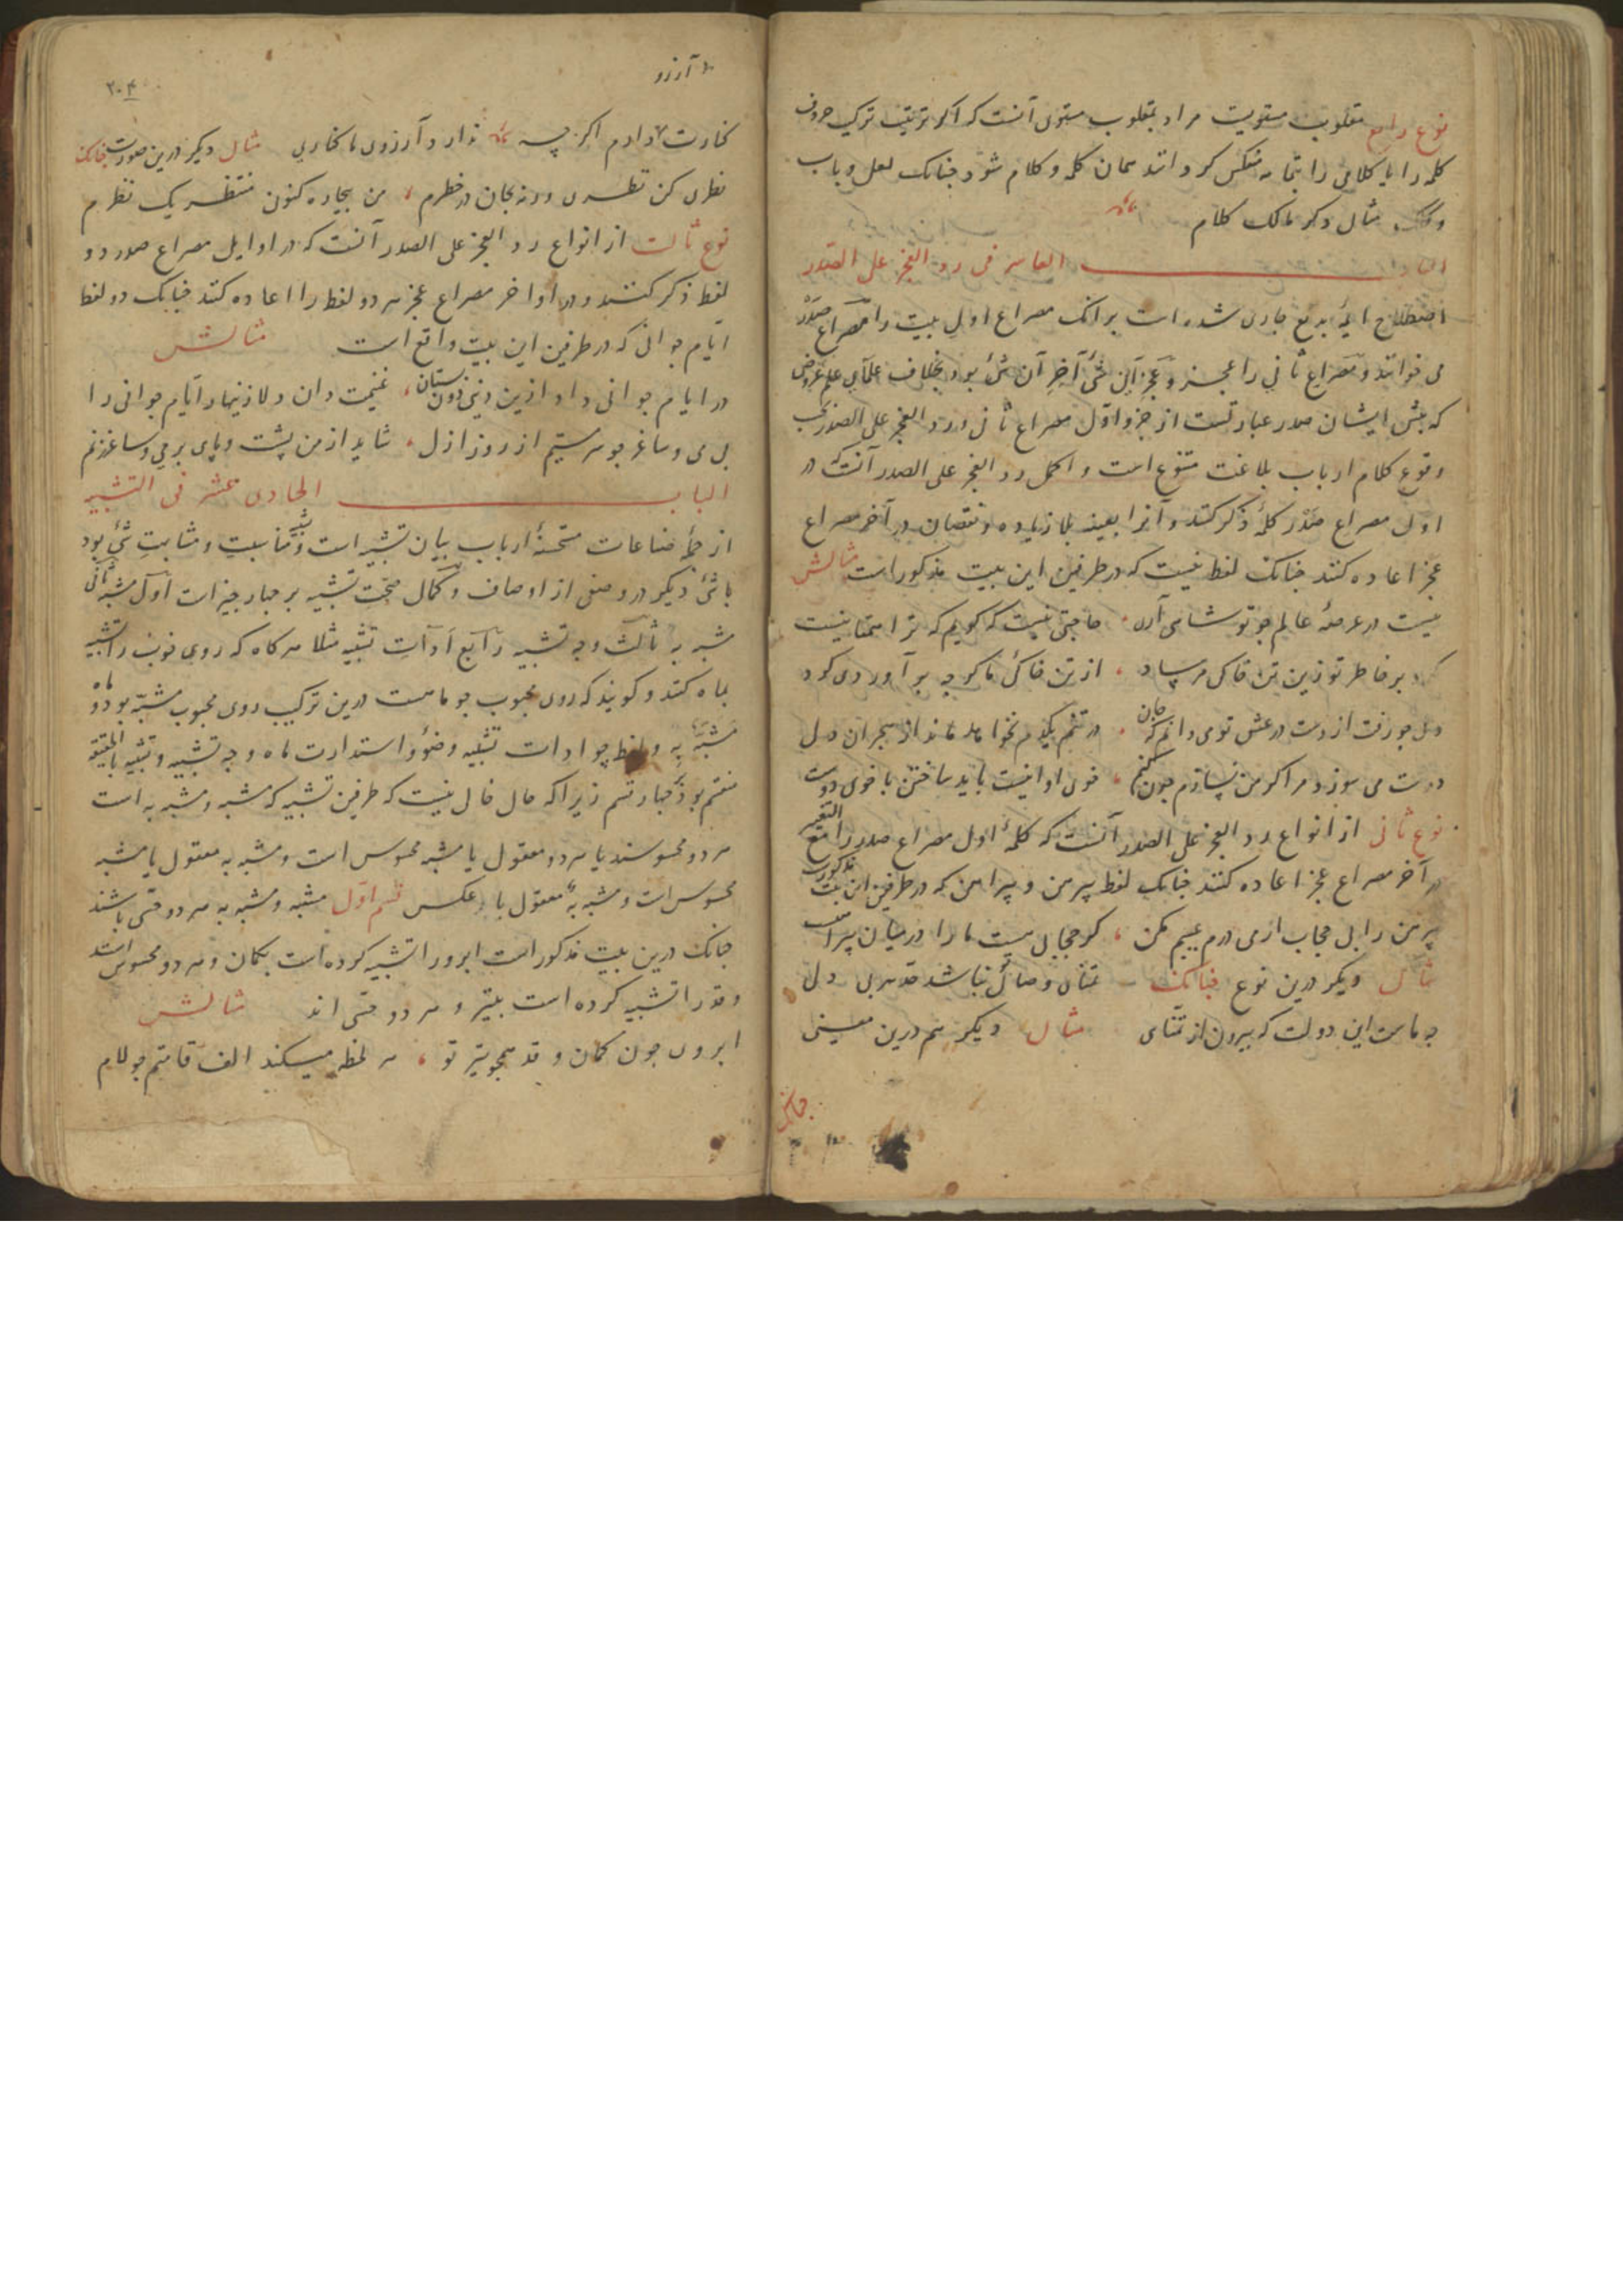 نوع رابع مقلوب مستویست مراد بمقلوب مستوی آنست که اکر ترتیب ترکیب حروف
کلمه را یا کلامی را بتمامه منعکس کردانند همان کلمه و کلام شود جنانک لعل و باب
مثال دکر مالک کلام
الباب العاشر فی رد العجز علی الصدر
اصطلاح ائمه بدیع جاری شده است برانک مصراع اول بیت را مصراع صدر
می خوانند و مصراع ثانی را عجز و عجز این شئ آخر آن شئ بود بخلاف علمای علم عروض
که بیش ایشان صدر عبارتست از جزو اول مصراع ثانی و رد العجز علی الصدر بحسب
وقوع کلام ارباب بلاغت متنوع است و اکمل رد العجز علی الصدر آنست که در
اول مصراع صدر کلمهٔ ذکر کنند و آنرا بعینه بلا زیاده و نقصان در آخر مصراع
عجز اعاده کنند جنانک لفظ نیست که در طرفین این بیت مذکور است مثالش
نیست در عرصهٔ عالم جو تو شاهی آری حاجتی نیست که کویم که ترا همتا نیست
کرد بر خاطر تو زین تن خاکی مرساد از تن خاکی ما کرچه برآوردی کرد
دل جو رفت از دست در عشق تو می دانم که جان در تنم یکدم نخواهد ماند از هجران دل
دوست می سوزد مرا کر من نسازم جون کنم خوی او اینست باید ساختن با خوی دوست
نوع ثانی از انواع رد العجز علی الصدر آنست که کلمهٔ اول مصراع صدر را مع التغییر
در آخر مصراع عجز اعاده کنند جنانک لفظ پیرهن و پیراهن که در طرفین این بیت مذکورست
پیرهن را بل حجاب ار می درم عیبم مکن کر حجابی هست ما را در میان پیراهنست
مثال دیکر درین نوع جنانک تمنای وصالش نباشد حد هر بی دل
جه ماست این دولت که بیرون از تمنای مثال دیکر هم درین معنی
جنانک
در آرزو
۲۰۴
کنارت دارم اکرچه ندارد آرزوی ما کناری مثال دیکر درین صورت جنانک
نظری کن نظری ورنه بجان در خطرم من بیجاره کنون منتظر یک نظرم
نوع ثالث از انواع رد العجز علی الصدر آنست که در اوایل مصراع صدر دو
لفظ ذکر کنند و در اواخر مصراع عجز هر دو لفظ را اعاده کنند جنانک دو لفظ
ایام جوانی که در طرفین این بیت واقع است مثالش
در ایام جوانی داد ازین دنیی دون بستان غنیمت دان دلا زنهار ایام جوانی را
بل می و ساغر جو سرستیم از روز ازل شاید از من پشت و پای بر می و ساغر زنم
الباب الحادی عشر فی التشبیه
از جملهٔ صناعات مستحسنهٔ ارباب بیان تشبیه است و تشبیه مناسبت و مشابهت شئ بود
با شئ دیکر در وصفی از اوصاف و کمال صحت تشبیه بر جهار جیز است اول مشبه ثانی
مشبه به ثالث وجه تشبیه رابع ادات تشبیه مثلا هرکاه که روی خوب را تشبیه
بماه کنند و کویند که روی محبوب جو ماهست درین ترکیب روی محبوب مشبه بود و ماه
مشبه به و لفظ جو ادات تشبیه و ضوء و استدارت ماه وجه تشبیه و تشبیه بالحقیقه
منقسم بود بجهار قسم زیرا که حال خالی نیست که طرفین تشبیه که مشبه و مشبه به است
هر دو محسوسند یا هر دو معقول یا مشبه محسوس است و مشبه به معقول یا مشبه
محسوس است و مشبه به معقول یا بر عکس قسم اول مشبه و مشبه به هر دو حسی باشند
جنانک درین بیت مذکور است ابرو را تشبیه کرده است بکمان و هر دو محسوس است
و قد را تشبیه کرده است بتیر و هر دو حسی اند مثالش
ابروی جون کمان و قد همجو تیر تو هر لحظه میکند الف قامتم جو لام